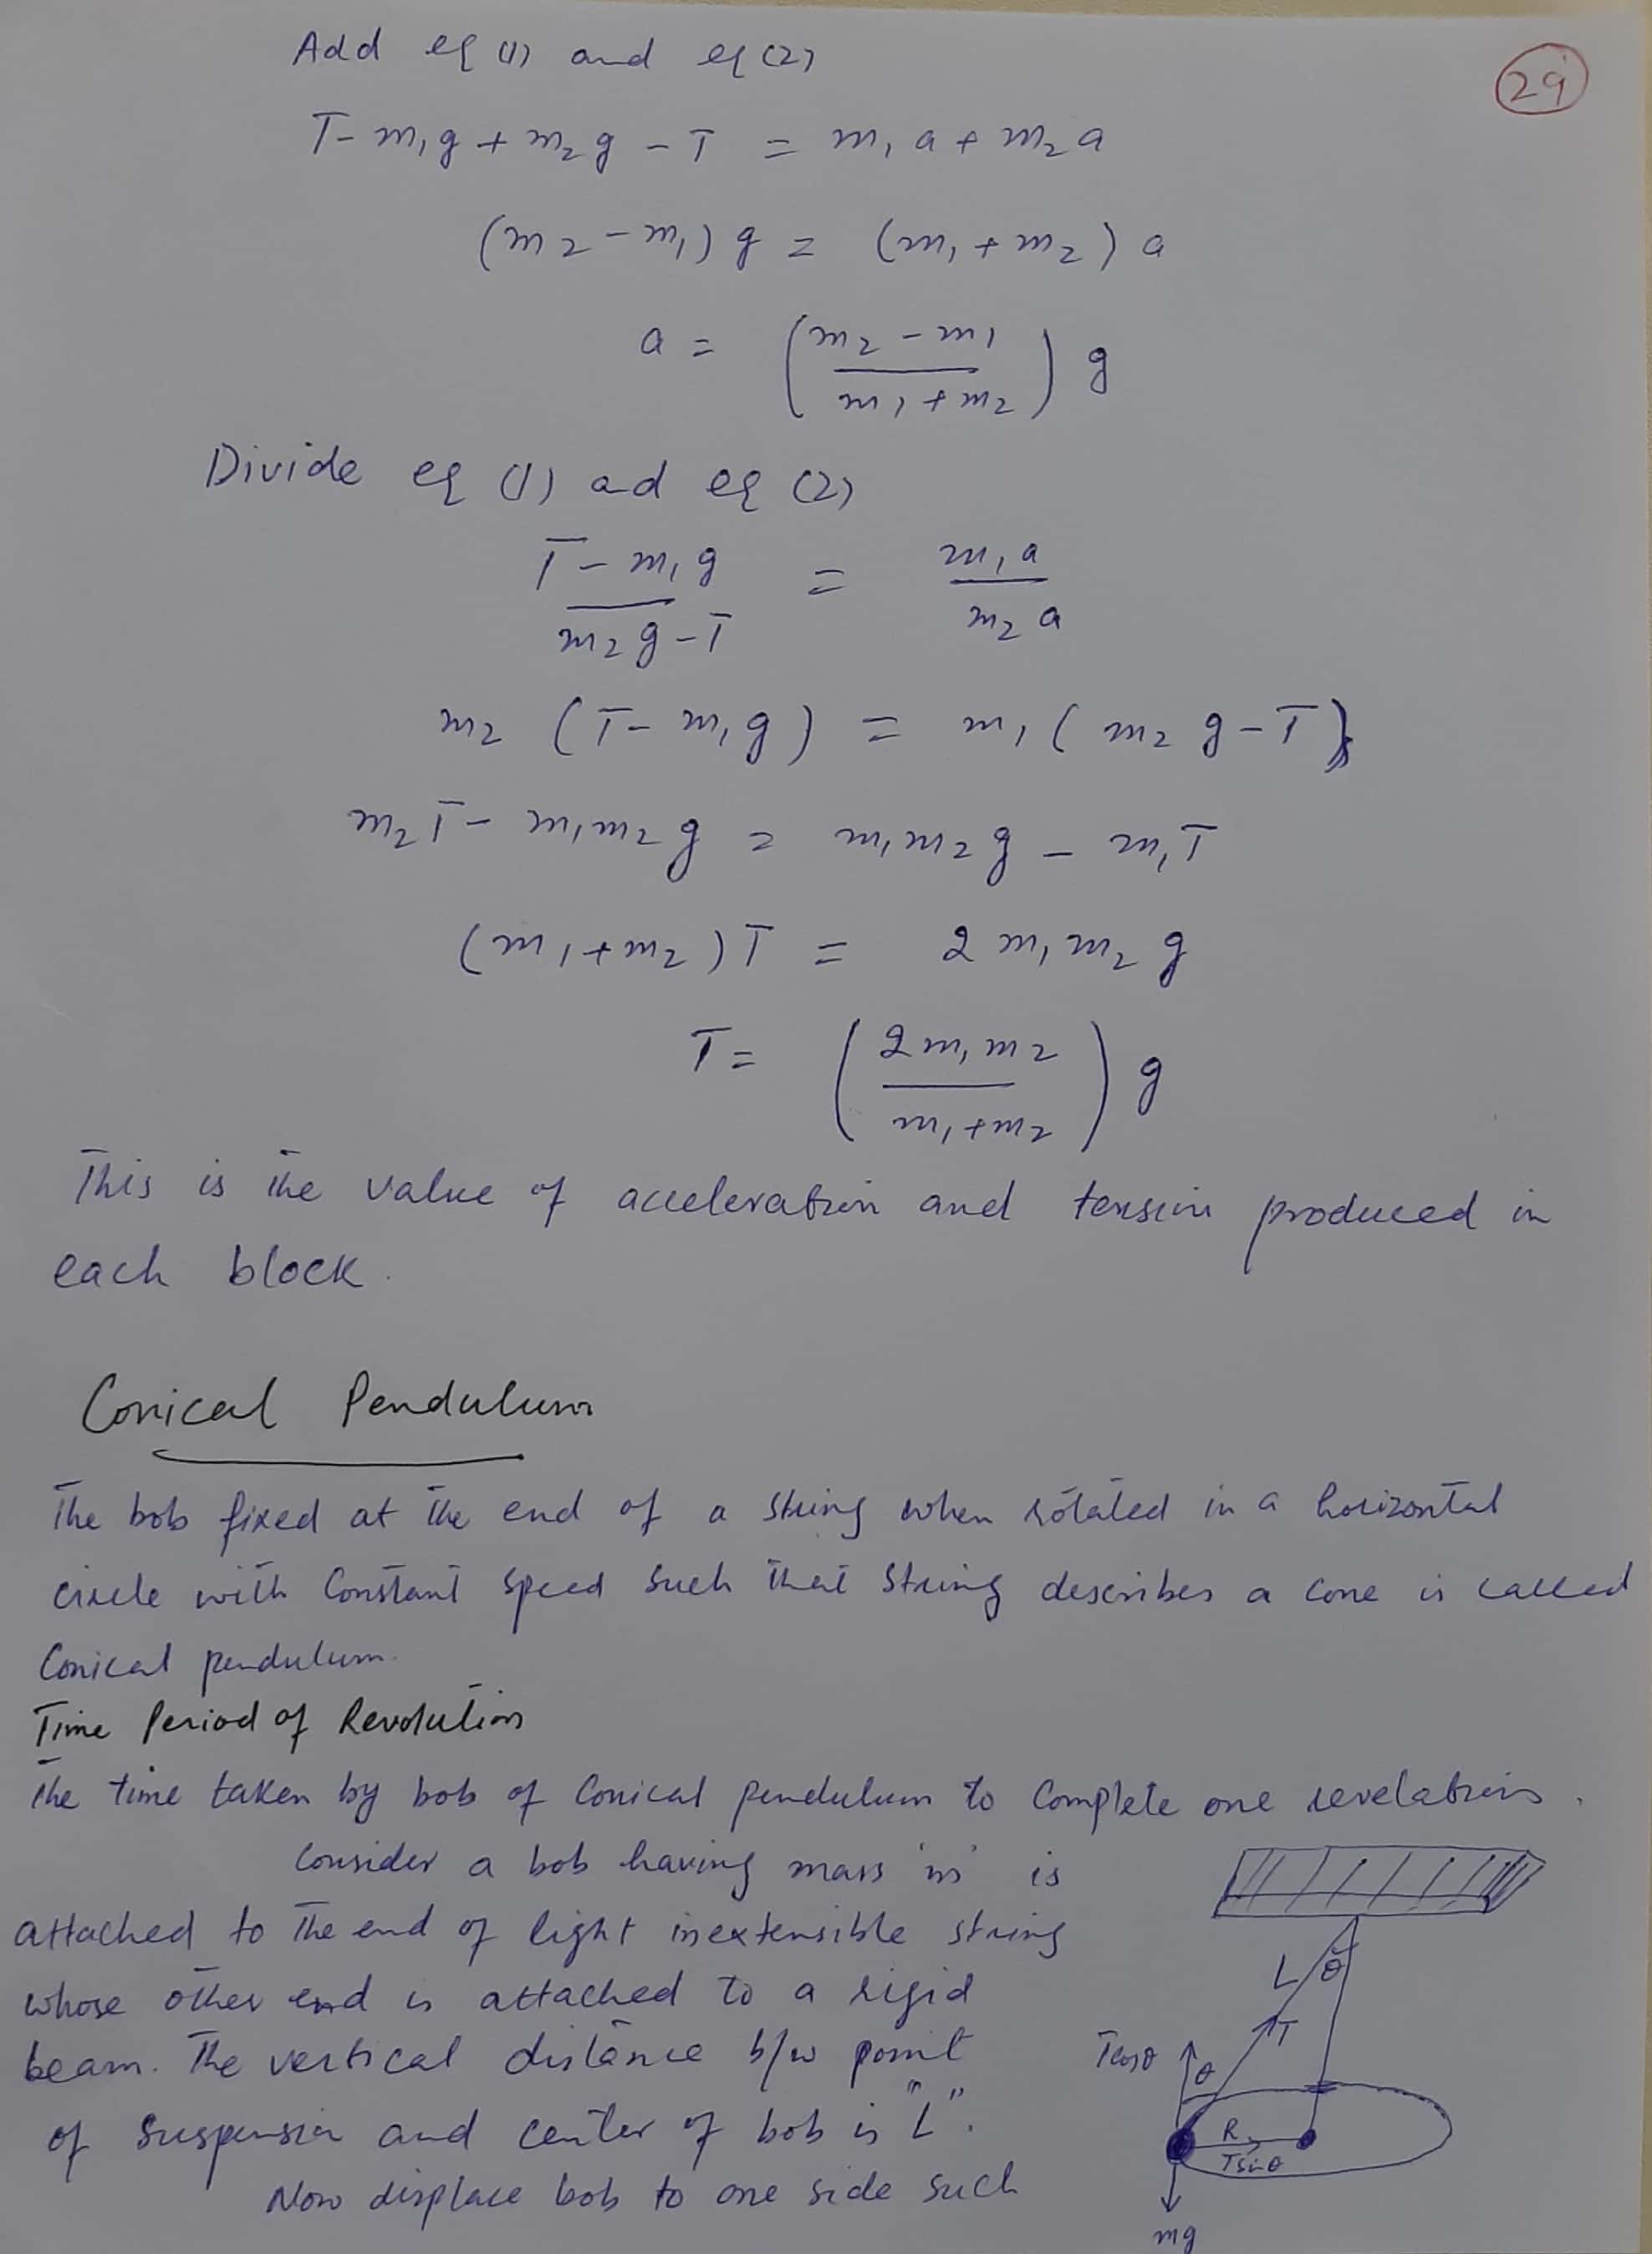 29
Add eq (1) and eq (2)
T - m₁g + m₂g - T = m₁a + m₂a
(m₂ - m₁) g = (m₁ + m₂) a
a = ( (m₂ - m₁) / (m₁ + m₂) ) g
Divide eq (1) ad eq (2)
(T - m₁g) / (m₂g - T) = m₁a / m₂a
m₂ (T - m₁g) = m₁ (m₂g - T)
m₂T - m₁m₂g = m₁m₂g - m₁T
(m₁ + m₂) T = 2 m₁m₂g
T = ( 2m₁m₂ / (m₁ + m₂) ) g
This is the value of acceleration and tension produced in
each block.
Conical Pendulum
The bob fixed at the end of a string when rotated in a horizontal
circle with Constant speed such that string describes a cone is called
Conical pendulum.
Time Period of Revolution
The time taken by bob of Conical pendulum to Complete one revelations.
Consider a bob having mass 'm' is
attached to the end of light inextensible string
whose other end is attached to a rigid
beam. The vertical distance b/w point
of suspension and center of bob is "L".
Now displace bob to one side such
L θ
T
Tcosθ θ
R
Tsinθ
mg